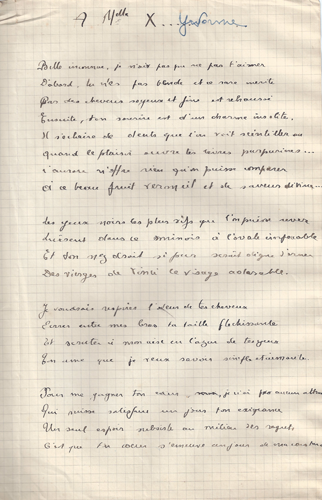 A Melle X... Yvonne
Belle inconnue, je n'ai pas pu ne pas t'aimer
D'abord, tu n'es pas blonde et ce rare mérite
Par des cheveux soyeux et fins est rehaussé
Ensuite, ton sourire est d'un charme insolite,
Il s'éclaire de dents que l'on voit scintiller
quand le plaisir ouvre tes lèvres purpurines...
L'aurore n'offre rien qu'on puisse comparer
et ce beau fruit vermeil et de saveur divine...
Les yeux noirs les plus vifs que l'on puisse
Luisent dans ce minois à l'ovale
Et ton nez droit si pur serait digne d'orner
Des vierges de Vinci le visage adorable.
Je voudrais respirer l'odeur de tes cheveux
Errer entre mes bras ta taille fléchissante
Et scruter à mon aise en l'azur de tes yeux
En une que je veux savoir
Pour me gagner ton cœur, je n'ai pas aucun
Qui puisse un jour ton exigeance
Un seul espoir subsiste au milieu des
C'est que ton cœur s'émeuve un jour de ma constance